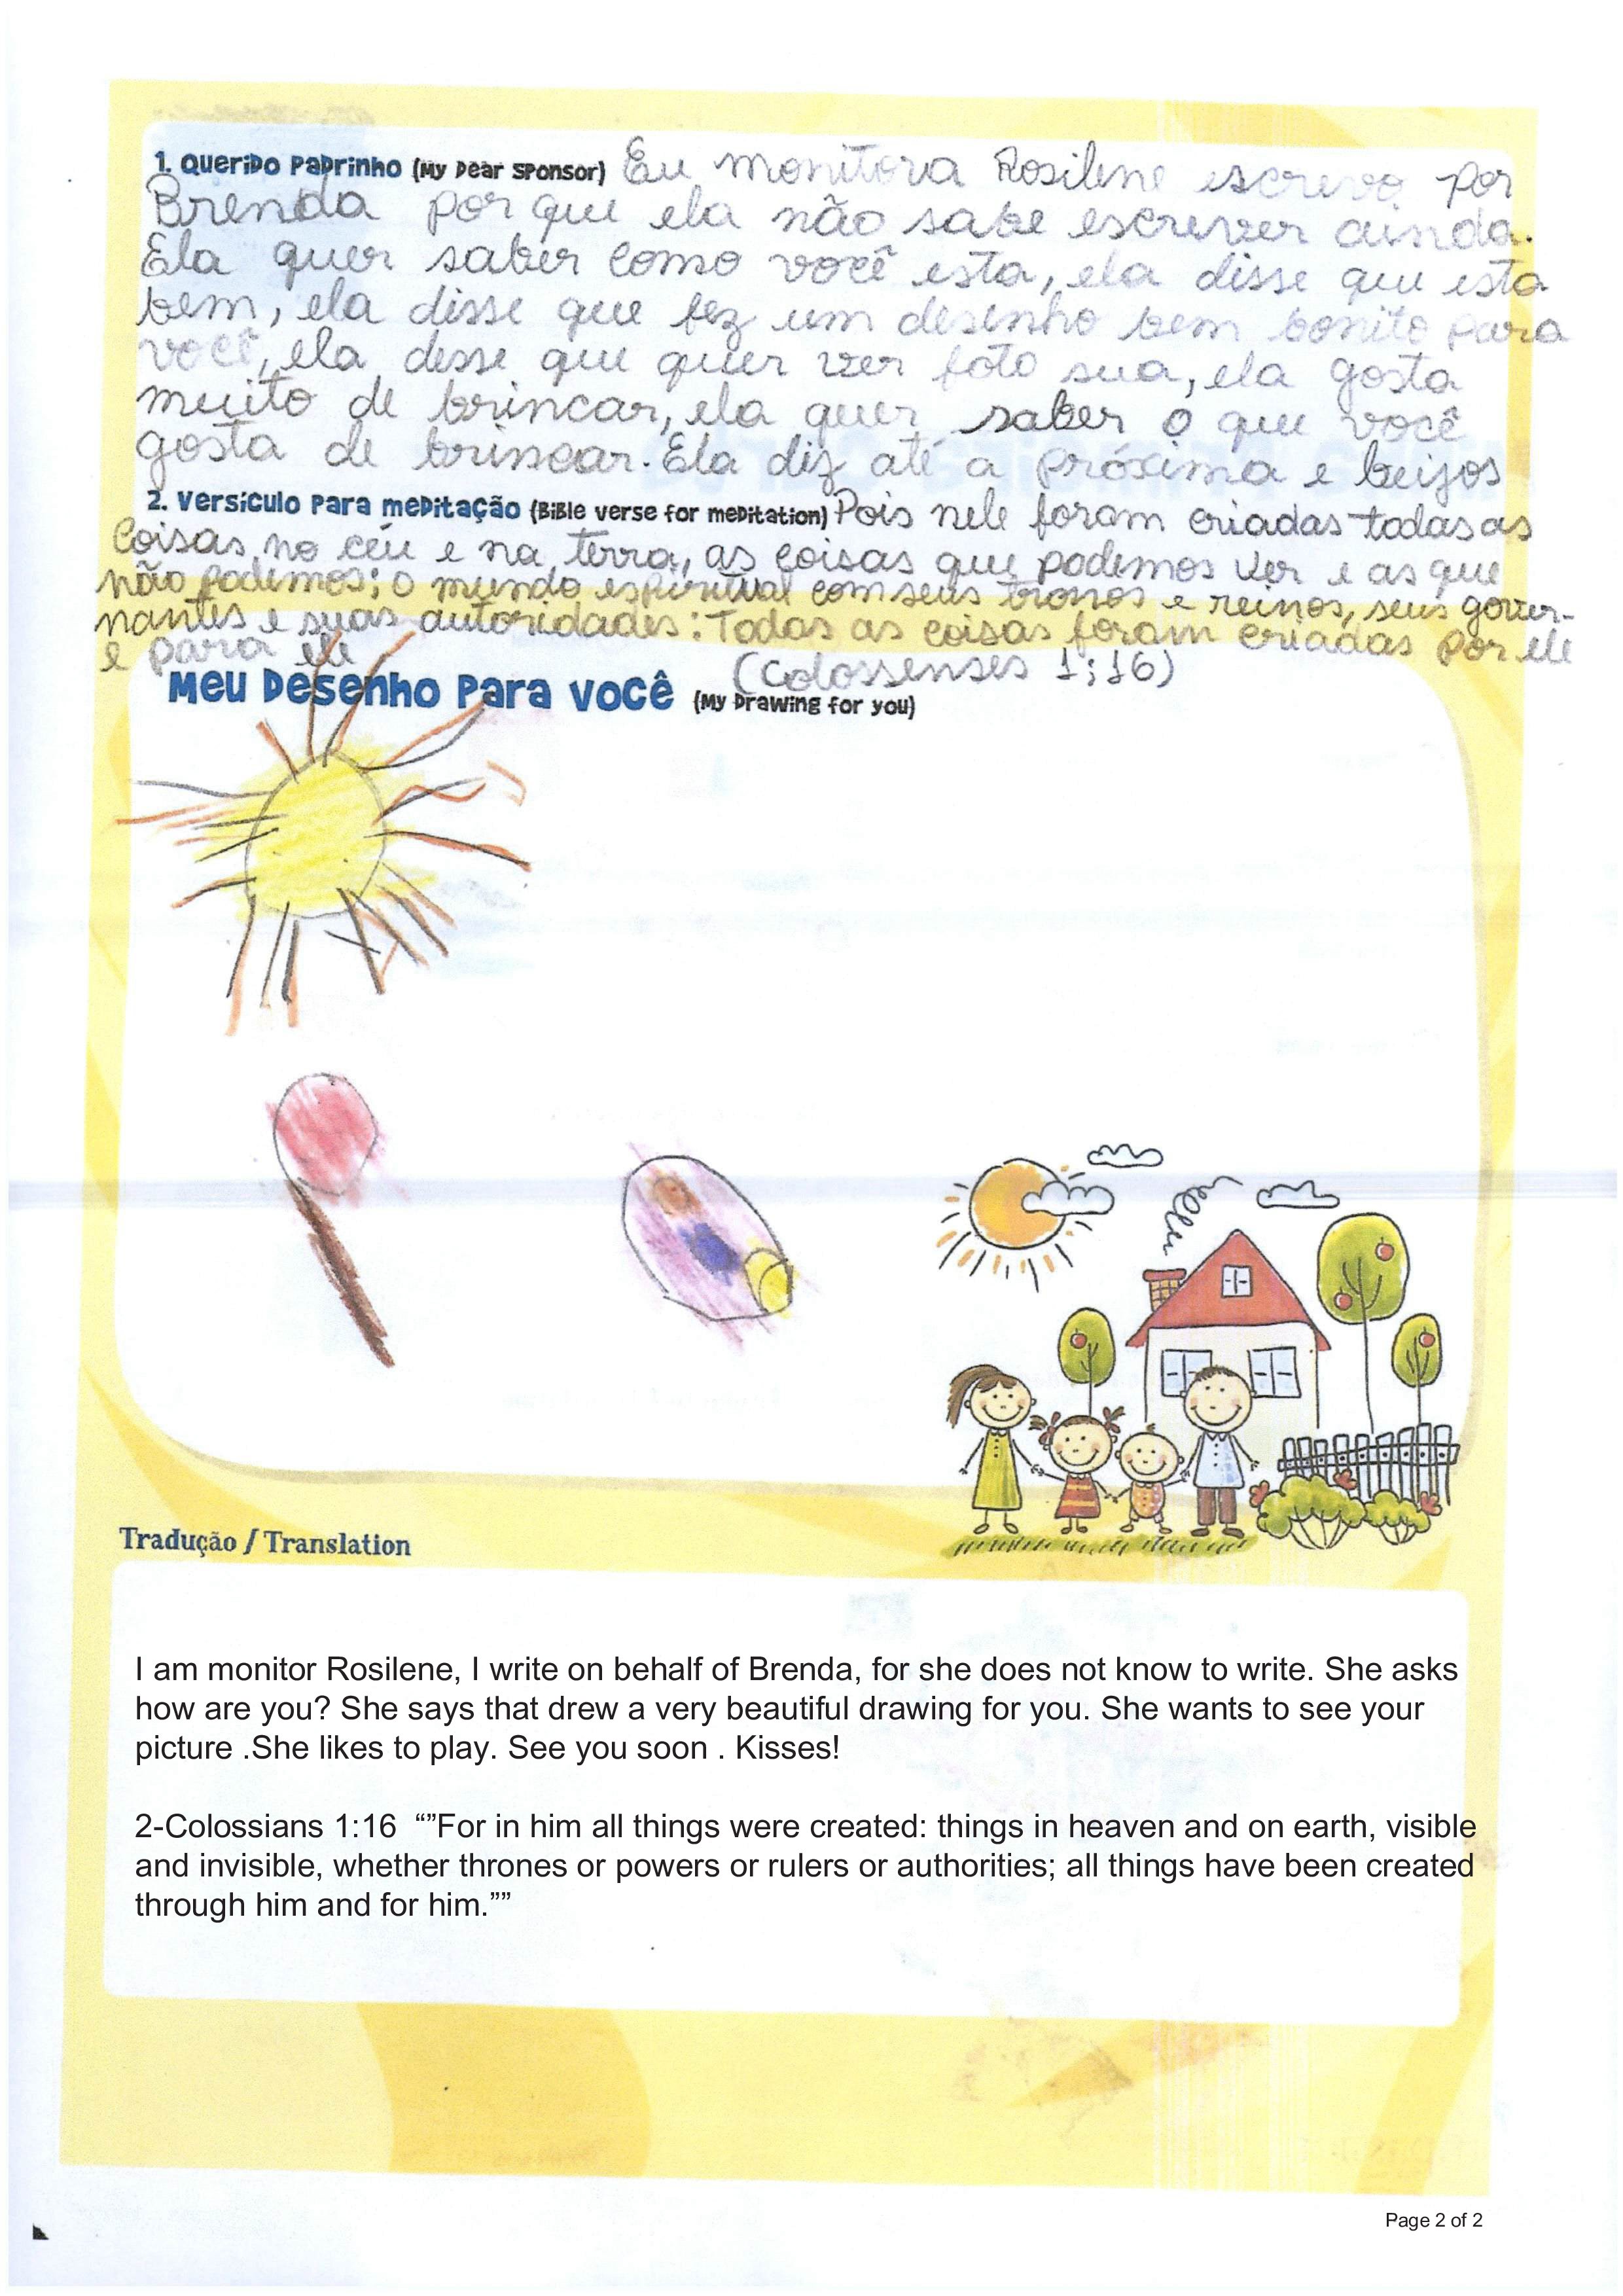 1. Querido Padrinho (My Dear Sponsor) Eu monitora Rosilene escrevo por
Brenda por que ela não sabe escrever ainda.
Ela quer saber como você esta, ela disse que esta
bem, ela disse que fez um desenho bem bonito para
você, ela desse que quer ver foto sua, ela gosta
muito de brincar, ela quer saber o que você
gosta de brincar. Ela diz até a próxima e beijos
2. Versículo para meditação (Bible verse for meditation) Pois nele foram criadas todas as
Coisas, no céu e na terra, as coisas que podemos ver e as que
não podemos; o mundo espiritual com seus tronos e reinos, seus gover-
nantes e suas autoridades: Todas as coisas foram criadas por ele
e para ele
(Colossenses 1;16)
Meu Desenho Para Você (My Drawing for you)
Tradução / Translation
I am monitor Rosilene, I write on behalf of Brenda, for she does not know to write. She asks
how are you? She says that drew a very beautiful drawing for you. She wants to see your
picture .She likes to play. See you soon . Kisses!
2-Colossians 1:16 “”For in him all things were created: things in heaven and on earth, visible
and invisible, whether thrones or powers or rulers or authorities; all things have been created
through him and for him.””
Page 2 of 2